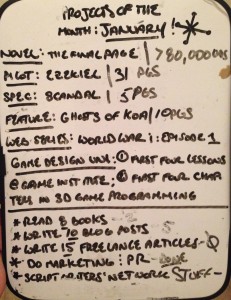 PROJECTS OF THE
MONTH: JANUARY!
NOVEL: THE FINAL PAGE / >80,000
MGT: EZEKIEL / 31 PGS
SPEC: SCANDAL / 5 PGS
FEATURE: GHOSTS OF KOA / 10 PGS
WEB SERIES: WORLD WAR i: EPISODE 1
GAME DESIGN UNI: ① FIRST FOUR LESSONS
@ GAME INSTITUTE; ② FIRST FOUR CHAP
TERS IN 3D GAME PROGRAMMING
* READ 8 BOOKS -
* WRITE 70 BLOG POSTS - 5
* WRITE 15 FREELANCE ARTICLES - 0
* DO MARKETING: PR - DONE
* SCRIPTWRITERS' NETWORK STUFF -